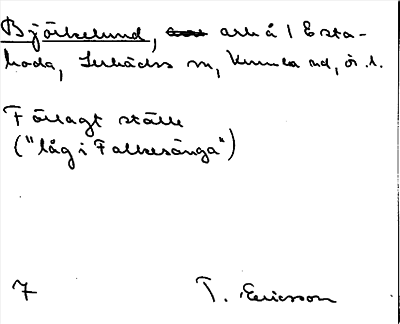 Björkelund, arh å 1 Esta-
boda, Lerbäcks sn, Kumla hd, ör. l.
Förlagt ställe
("låg i Falkesänga")
7 T. Ericsson